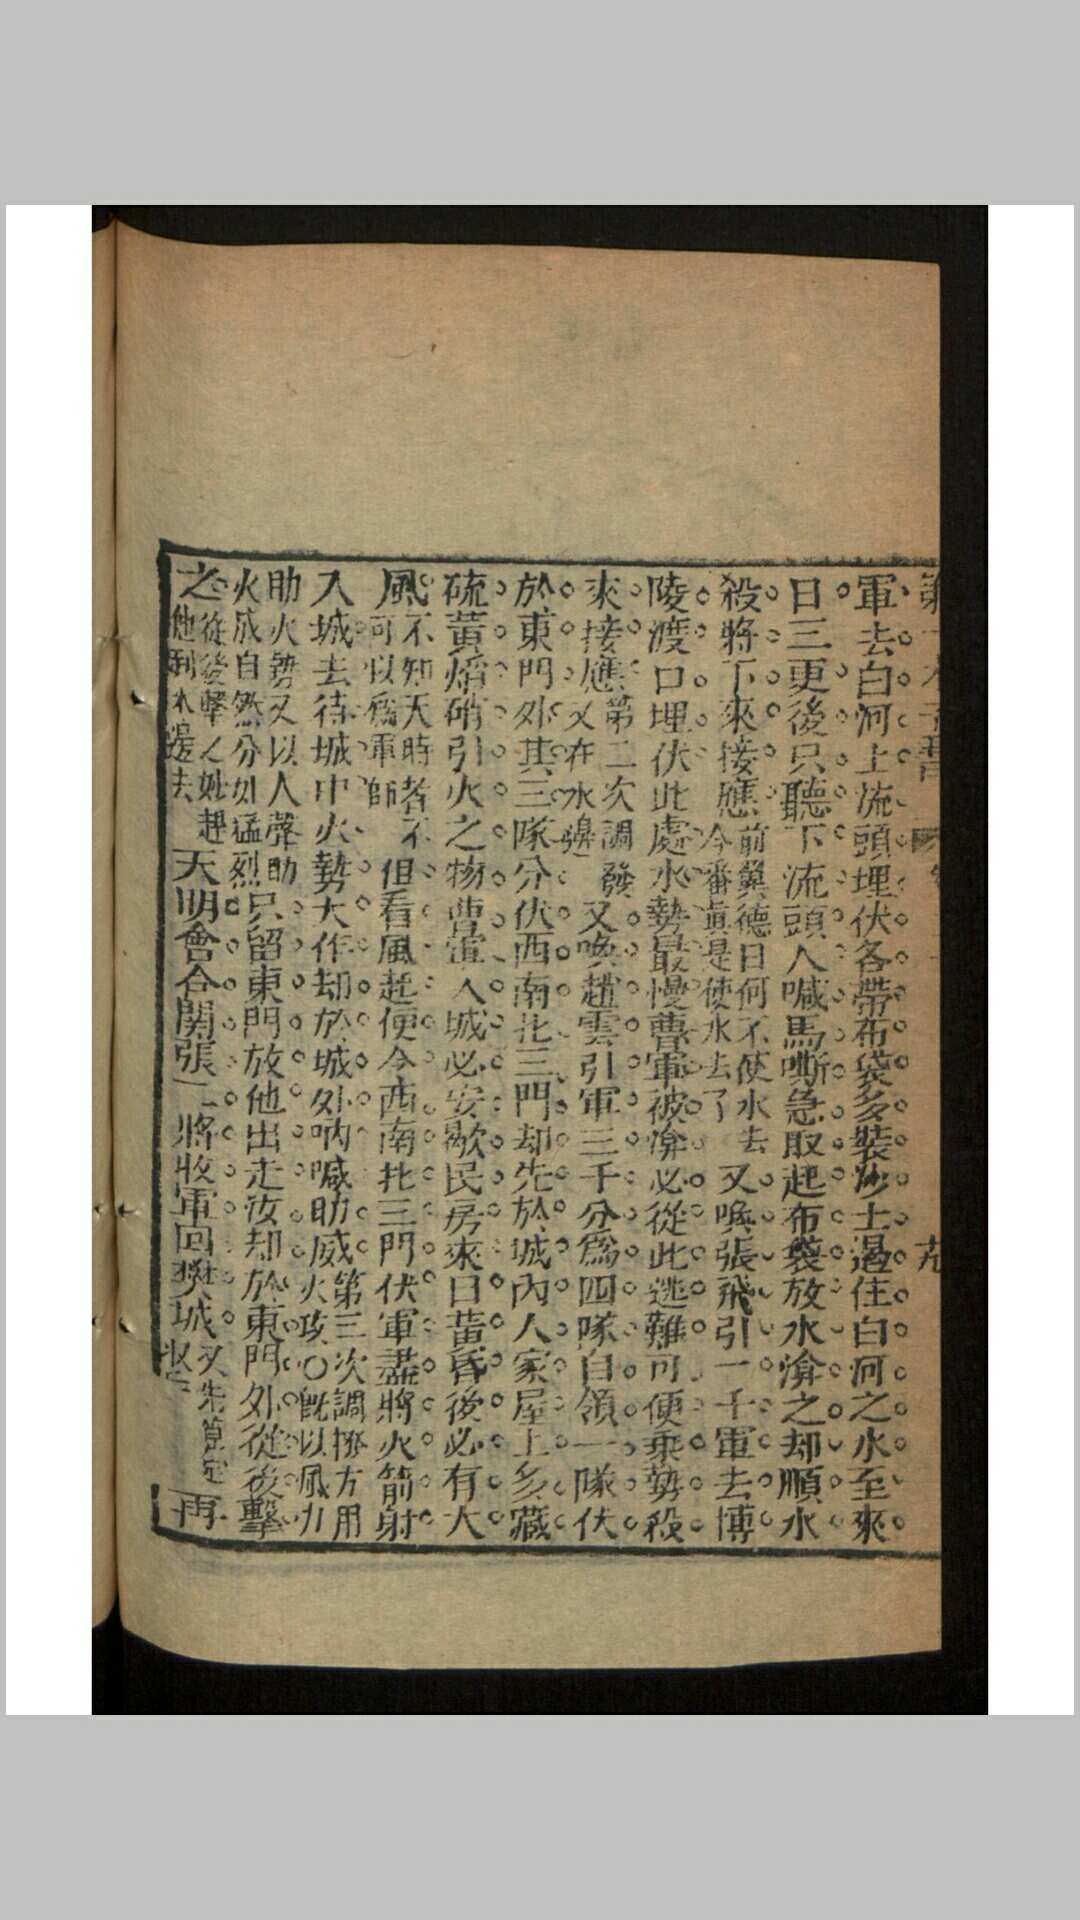 軍去白河上流頭埋伏各帶布袋多裝沙土遏住白河之水至來
日三更後只聽下流頭人喊馬嘶急取起布袋放水渰之却順水
殺將下來接應前翼德曰何不使水去今番真是使水去了又喚張飛引一千軍去博
陵渡口埋伏此處水勢最慢曹軍被渰必從此逃難可便乘勢殺
來接應第二次調發又在水邊又喚趙雲引軍三千分爲四隊自領一隊伏
於東門外其三隊分伏西南北三門却先於城內人家屋上多藏
硫黃焰硝引火之物曹軍入城必安歇民房來日黃昏後必有大
風不知天時者不可以爲軍師但看風起便令西南北三門伏軍盡將火箭射
入城去待城中火勢大作却於城外吶喊助威第三次調撥方用火攻○旣以風力
助火勢又以人聲助火成自然分外猛烈只留東門放他出走汝却於東門外從後擊
之從後擊之妙趕他到水邊去天明會合關張二將收軍回樊城又先算定再